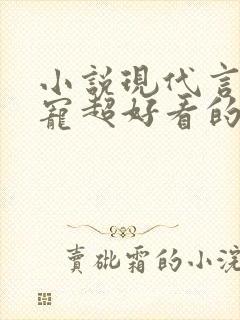 小説現代言
寵超好看的
賣砒霜的小浣